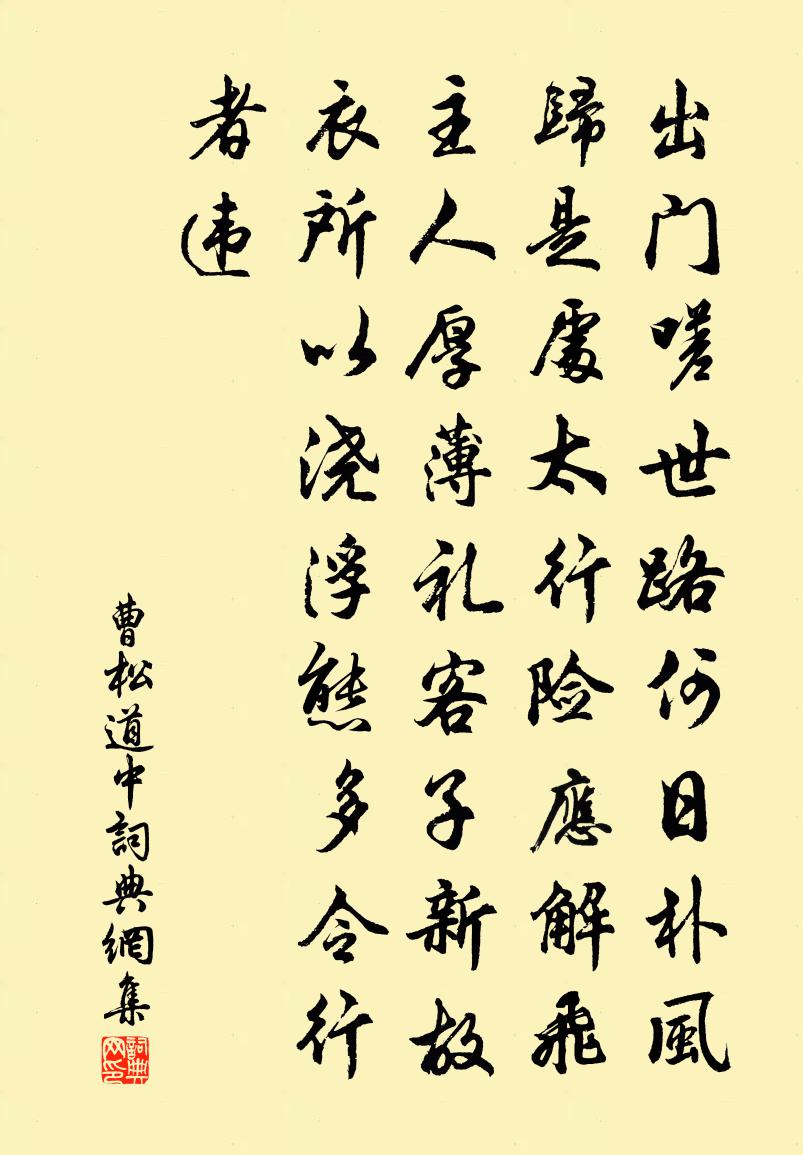 出门嗟世路何日朴風
歸是處太行险應解飛
主人厚薄礼客子新故
衣所以浇浮態多令行
者违
曹松道中詞典網集
詞典网印